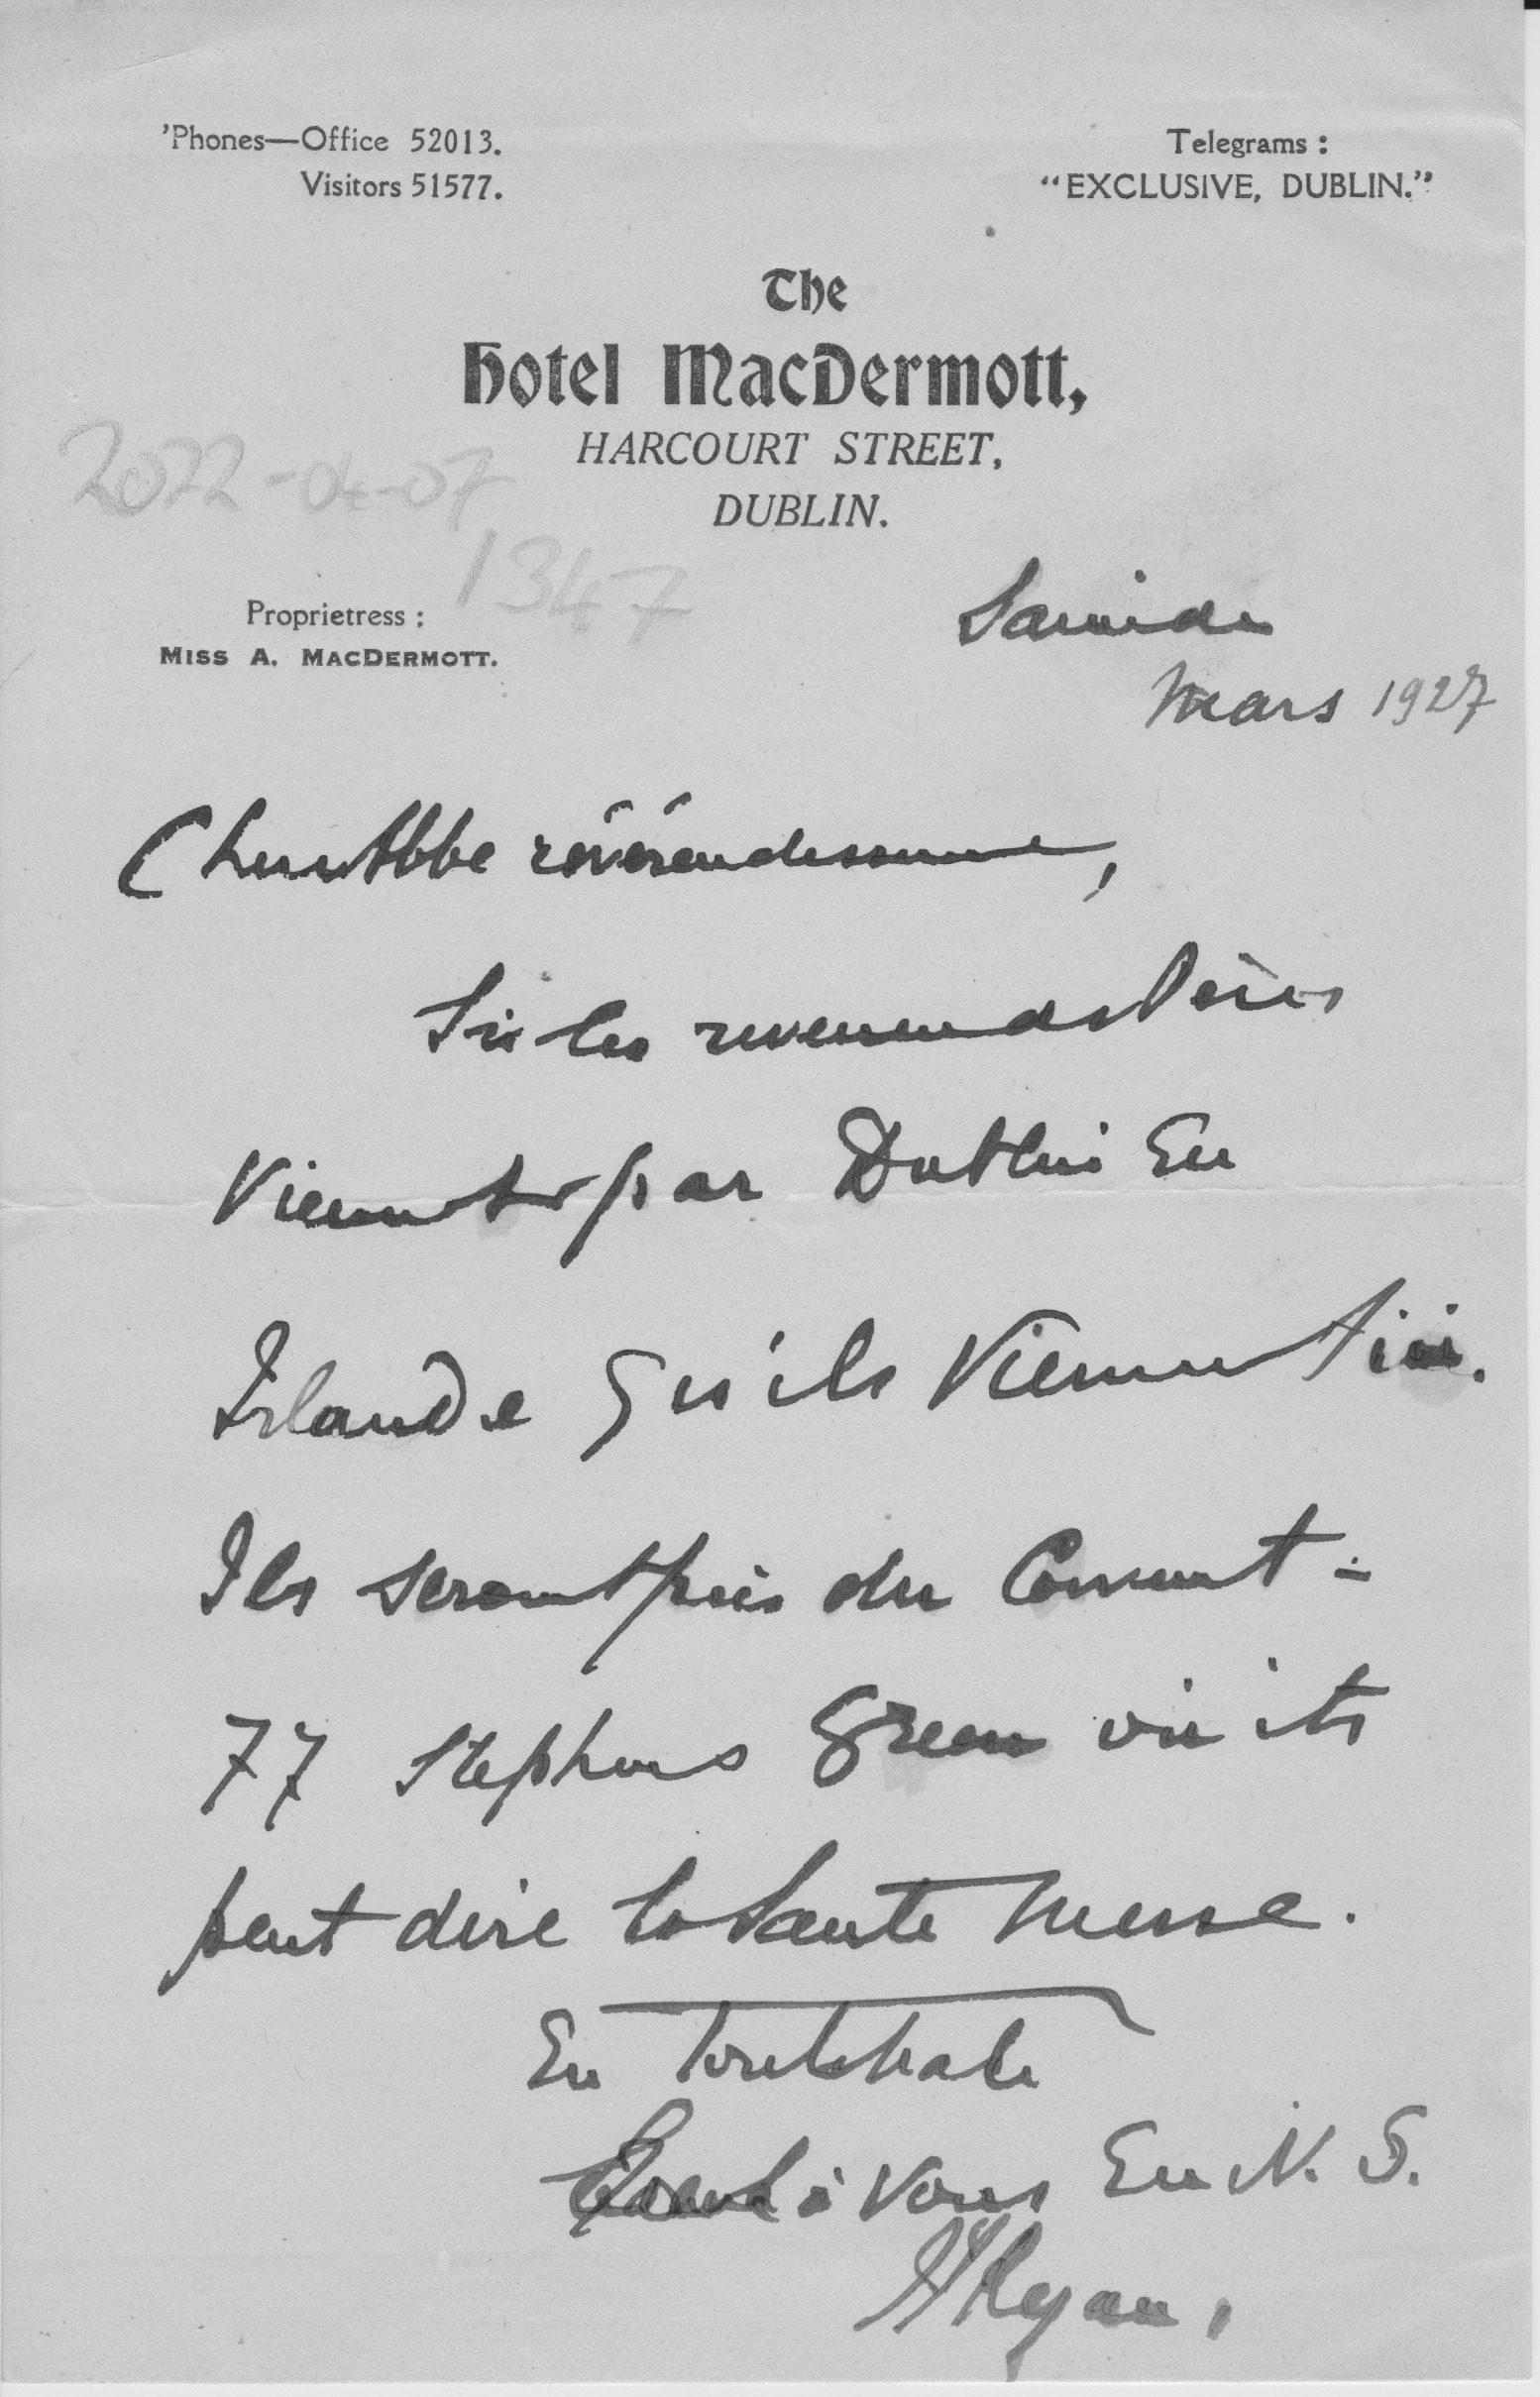 'Phones—Office 52013.
Visitors 51577.
Telegrams :
"EXCLUSIVE, DUBLIN."
The
Hotel MacDermott,
HARCOURT STREET,
DUBLIN.
2022-04-07
1347
Proprietress :
MISS A. MACDERMOTT.
Samidi
Mars 1927
Cher Abbe révérendissime,
Si les reverends Pères
Viennent par Dublin En
Irlande Qu'ils Viennent ici.
Ils seront près du Convent -
77 Stephens Green où ils
peut dire la Sainte Messe.
En
à Vous En N. S.
Ryan,